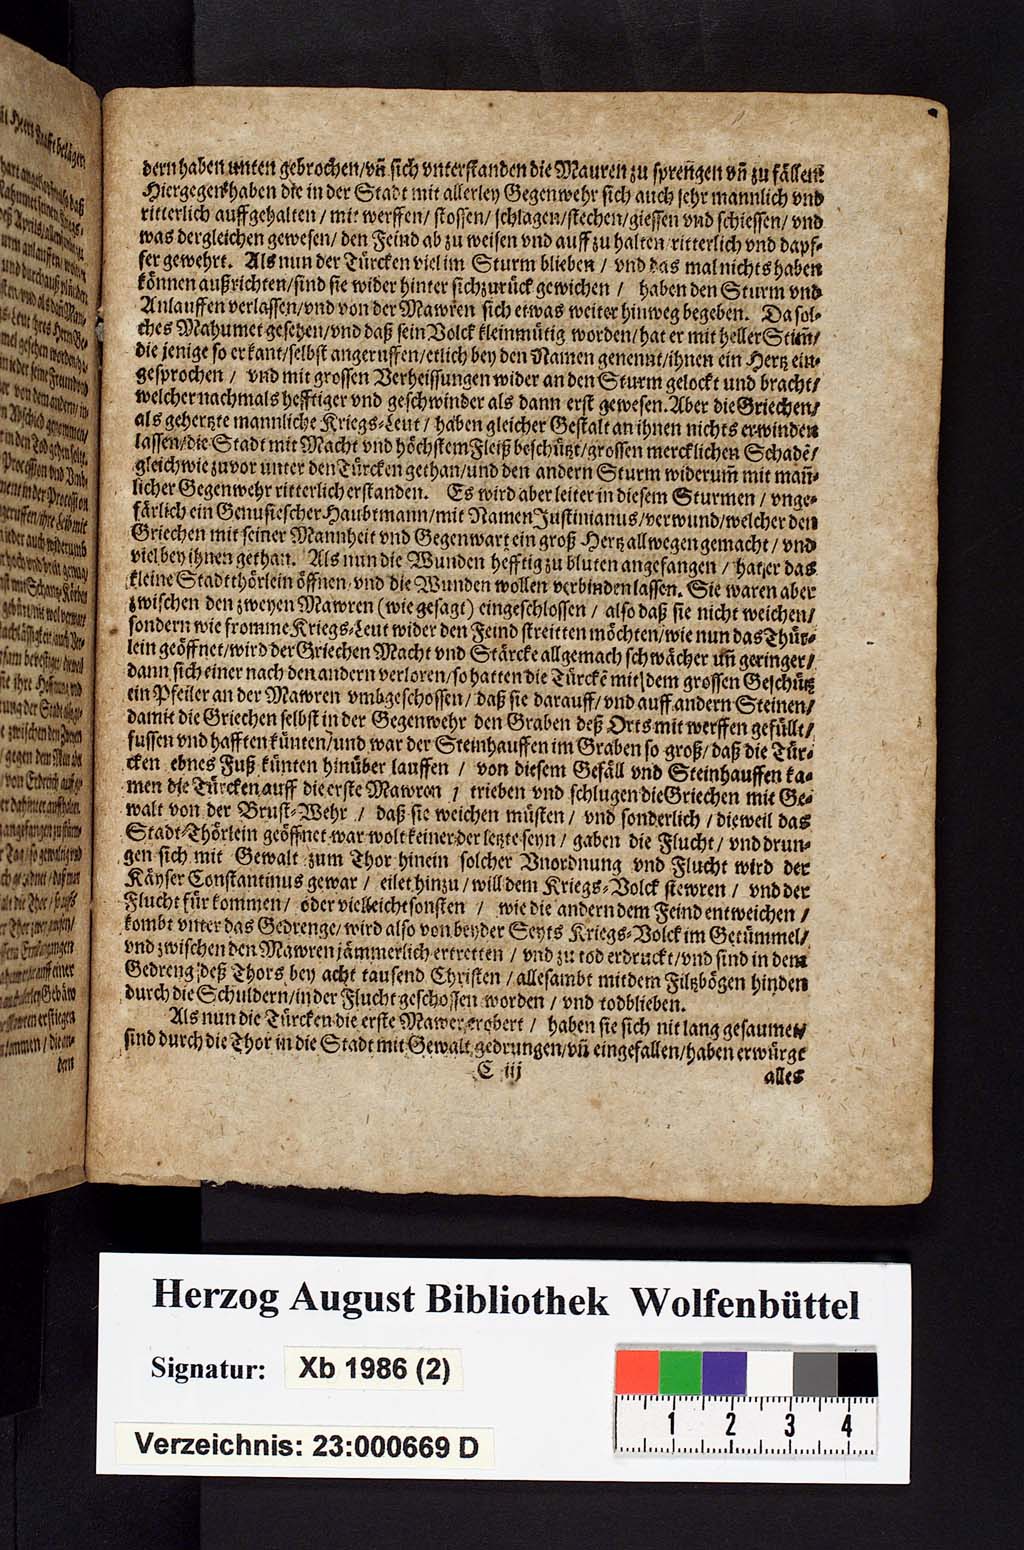 dern haben unten gebrochen/vñ sich vnterstanden die Mauren zu sprengen vñ zu fällen
Hiergegen haben die in der Stadt mit allerley Gegenwehr sich auch sehr mannlich vnd
ritterlich auffgehalten / mit werffen/ stossen/ schlagen/stechen/giessen vnd schiessen/ vnd
was dergleichen gewesen/ den Feind ab zu weisen vnd auff zu halten ritterlich vnd dapf-
fer gewehrt. Als nun der Türcken viel im Sturm blieben / vnd das mal nichts haben
können außrichten/sind sie wider hinter sich zurück gewichen / haben den Sturm vnd
Anlauffen verlassen/vnd von der Mawren sich etwas weiter hinweg begeben. Da sol-
ches Mahumet gesehen/vnd daß sein Volck kleinmütig worden/hat er mit heller Stim̃/
die jenige so er kant/selbst angeruffen/etlich bey den Namen genennt/ihnen ein Hertz ein-
gesprochen / vnd mit grossen Verheissungen wider an den Sturm gelockt und bracht/
welcher nachmals hefftiger vnd geschwinder als dann erst gewesen. Aber die Griechen/
als gehertzte mannliche Kriegs-Leut / haben gleicher Gestalt an ihnen nichts erwinden
lassen/die Stadt mit Macht vnd höchstem Fleiß beschützt/grossen mercklichen Schadẽ/
gleich wie zuvor unter den Türcken gethan/und den andern Sturm widerum̃ mit mañ-
licher Gegenwehr ritterlich erstanden. Es wird aber leiter in diesem Sturmen / vnge-
färlich ein Genuesischer Haubtmann/mit Namen Justinianus/verwund/welcher den
Griechen mit seiner Mannheit vnd Gegenwart ein groß Hertz allwegen gemacht / vnd
viel bey ihnen gethan. Als nun die Wunden hefftig zu bluten angefangen / hat er das
kleine Stadtthörlein öffnen/vnd die Wunden wollen verbinden lassen. Sie waren aber
zwischen den zweyen Mawren (wie gesagt) eingeschlossen / also daß sie nicht weichen/
sondern wie fromme Kriegs-Leut wider den Feind streitten möchten/wie nun das Thür-
lein geöffnet/wird der Griechen Macht vnd Stärcke allgemach schwächer uñ geringer/
dann sich einer nach den andern verloren/so hatten die Türckẽ mit dem grossen Geschütz
ein Pfeiler an der Mawren vmbgeschossen / daß sie darauff/ vnd auff andern Steinen/
damit die Griechen selbst in der Gegenwehr den Graben deß Orts mit werffen gefüllt/
fussen vnd hafften künten/und war der Steinhauffen im Graben so groß/daß die Tür-
cken ebnes Fuß künten hinüber lauffen / von diesem Gefäll vnd Steinhauffen ka-
men die Türcken auff die erste Mawren / trieben und schlugen die Griechen mit Ge-
walt von der Brust-Wehr / daß sie weichen müsten / vnd sonderlich / dieweil das
Stadt-Thörlein geöffnet war wolt keiner der letzte seyn / gaben die Flucht / vnd drun-
gen sich mit Gewalt zum Thor hinein solcher Vnordnung vnd Flucht wird der
Käyser Constantinus gewar / eilet hinzu / will dem Kriegs-Volck stewren / vnd der
Flucht für kommen/ oder vielleicht sonsten / wie die andern dem Feind entweichen /
kombt vnter das Gedrenge/ wird also von beyder Seyts Kriegs-Volck im Getümmel/
vnd zwischen den Mawren jämmerlich ertretten / vnd zu tod erdruckt/vnd sind in dem
Gedreng deß Thors bey acht tausend Christen / allesambt mit dem Filtzbögen hinden
durch die Schuldern/in der Flucht geschossen worden / vnd todblieben.
Als nun die Türcken die erste Mawer erobert / haben sie sich nit lang gesaumet/
sind durch die Thor in die Stadt mit Gewalt gedrungen/vñ eingefallen/haben erwürgt
C iij
alles
Herzog August Bibliothek Wolfenbüttel
Signatur: Xb 1986 (2)
Verzeichnis: 23:000669 D
1 2 3 4